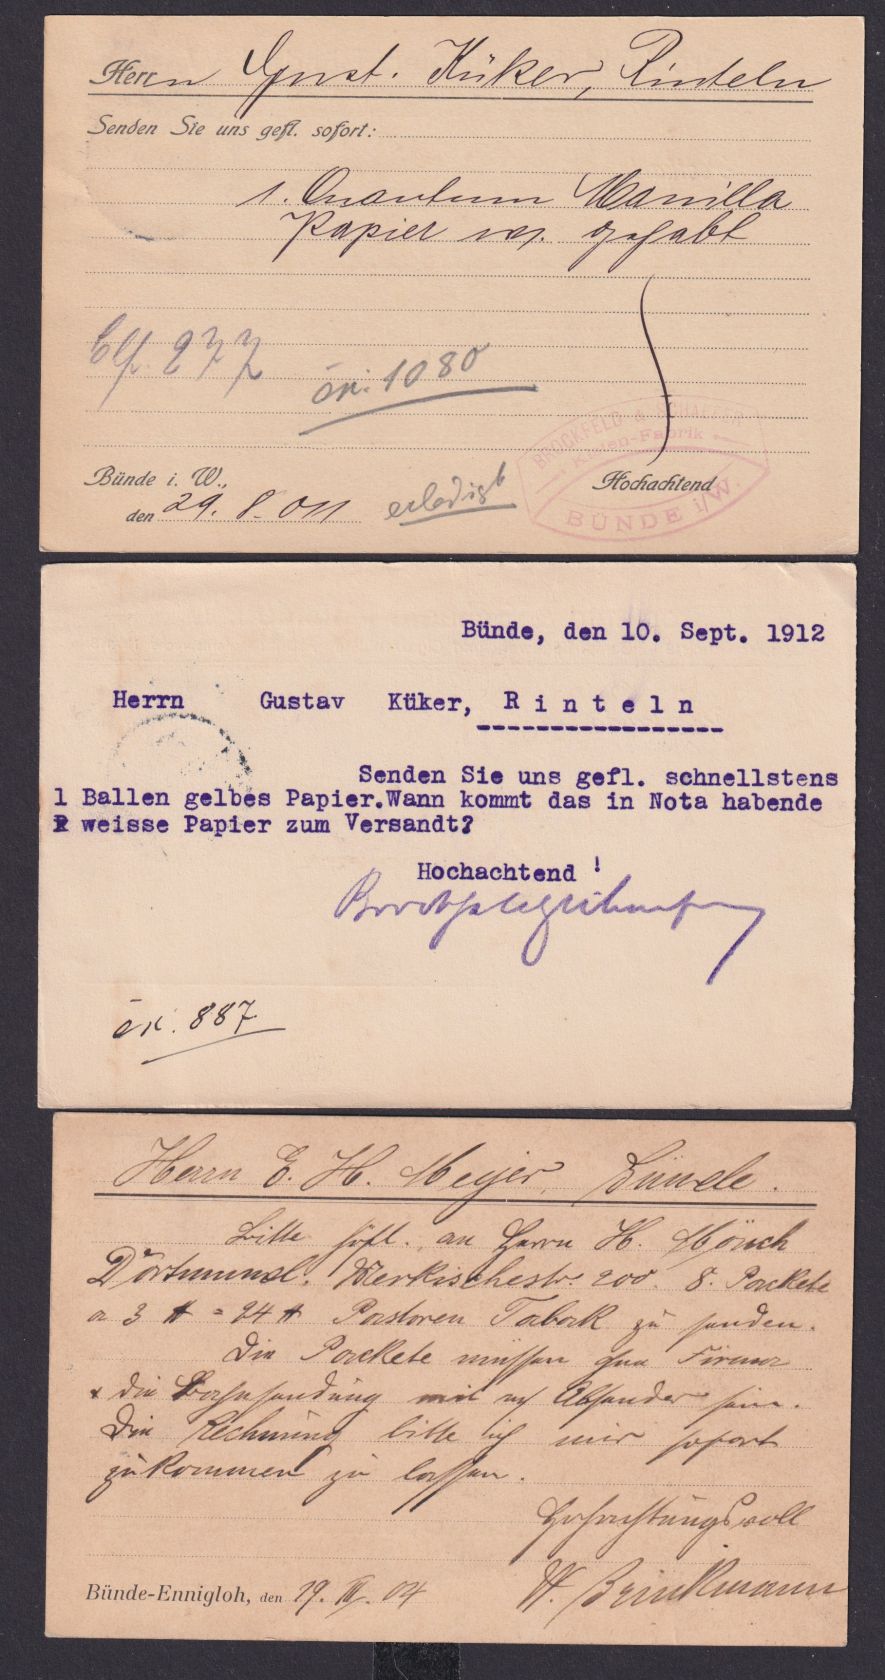 Herrn Gust. Küker, Rinteln
Senden Sie uns gefl. sofort:
1. Quantum Manilla
Papier ws. gehabt
277
ön. 1080
BROCKFELD & SCHAEFER
Kisten-Fabrik
BÜNDE i/W.
Bünde i. W.,
den 29. 8. 011
erledigt
Hochachtend
Bünde, den 10. Sept. 1912
Herrn Gustav Küker, Rinteln
Senden Sie uns gefl. schnellstens
1 Ballen gelbes Papier.Wann kommt das in Nota habende
weisse Papier zum Versandt?
Hochachtend !
887
Herrn E. H. Meyer, Bünde.
Bitte höfl. an Herrn H. Mönch
Dortmund. Merkischestr. 200. 8. Packete
a 3 ℔ = 24 ℔ Pastoren Taback zu senden.
Die Packete müssen Firma
& die Bahnsendung mit Absender sein.
Die Rechnung bitte ich mir sofort
zukommen zu lassen.
Hochachtungsvoll
Bünde-Ennigloh, den 19. III. 04
W. Brinkmann